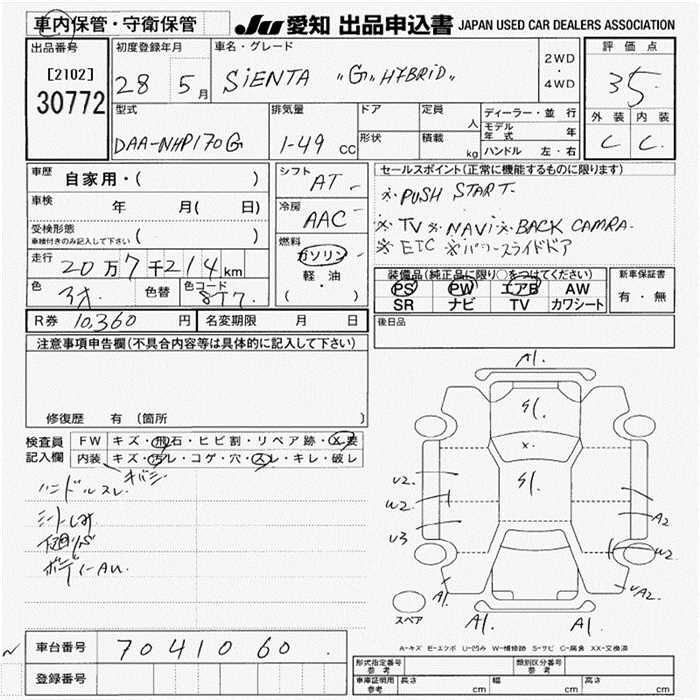 車内保管・守衛保管
JU 愛知 出品申込書 JAPAN USED CAR DEALERS ASSOCIATION
出品番号
[2102]
30772
初度登録年月
28 5月
車名・グレード
SiENTA "G" HYBRID"
2WD
・
4WD
評価点
35
外装 内装
C C
型式
DAA-NHP170G
排気量
1-49 cc
ドア
形状
定員
人
積載
kg
ディーラー・並行
モデル年式 年
ハンドル 左・右
車歴
自家用・( )
車検 年 月( 日)
受検形態
車検付きのみ記入して下さい ( )
走行
20万7千214km
色 色替 色コード
8T7.
シフト
AT -
冷房
AAC -
燃料
ガソリン
軽・油
( )
セールスポイント(正常に機能するものに限ります)
※PUSH START.
※TV ※NAVi ※BACK CAMRA.
※ETC ※パワースライドドア
装備品(純正品に限り○をつけてください)
PS PW エアB AW
SR ナビ TV カワシート
新車保証書
有・無
R券 10,360 円
名変期限 月 日
後日品
注意事項申告欄(不具合内容等は具体的に記入して下さい)
修復歴 有 (箇所 )
検査員記入欄
FW キズ・飛石・ヒビ割・リペア跡・X要
内装 キズ・汚レ・コゲ・穴・スレ・キレ・破レ
ハンドルスレ
シートしみ
A1.
S1.
x.
S1.
U2
W2
U3
A2
W2
A2
A1.
A1.
A1.
スペア
A-キズ E-エクボ U-凹み W-補修跡 S-サビ C-腐食 XX-交換済
車台番号
7041060.
登録番号
形式指定番号 参考
類別区分番号 参考
車庫証明用 参考
長さ cm
幅 cm
高さ cm